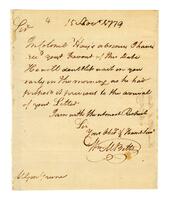 Sir 4 15 Novr. 1779
In Colonel Hay's absence I have
rec'd your Favour of this date
He will doubtless wait on you
early in the morning as he had
proposed it previous to the arrival
of your Letter
I am with the utmost Respect
Sir
Your Obed Humbl